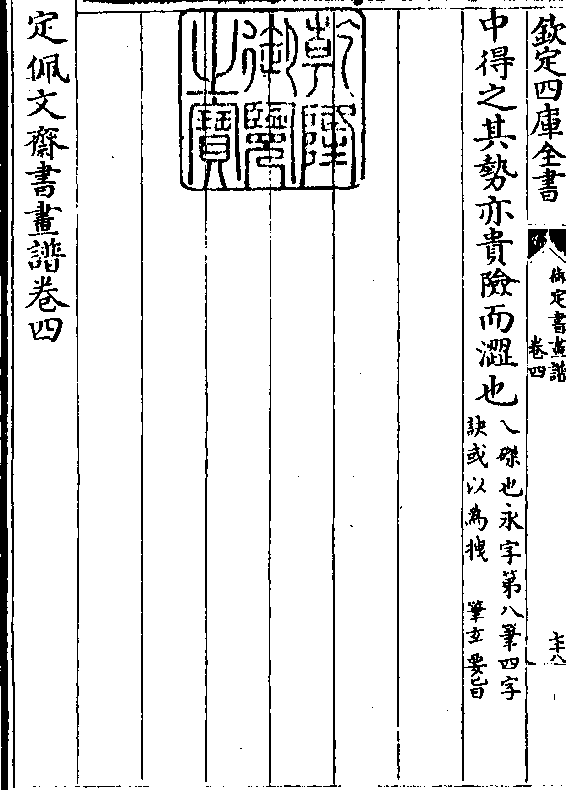 欽定四庫全書
御定書畫譜
卷四
中得之其勢亦貴險而澀也
乀磔也永字第八筆四字
訣或以為拽 筆玄要旨
乾隆御覽之寶
定佩文齋書畫譜卷四